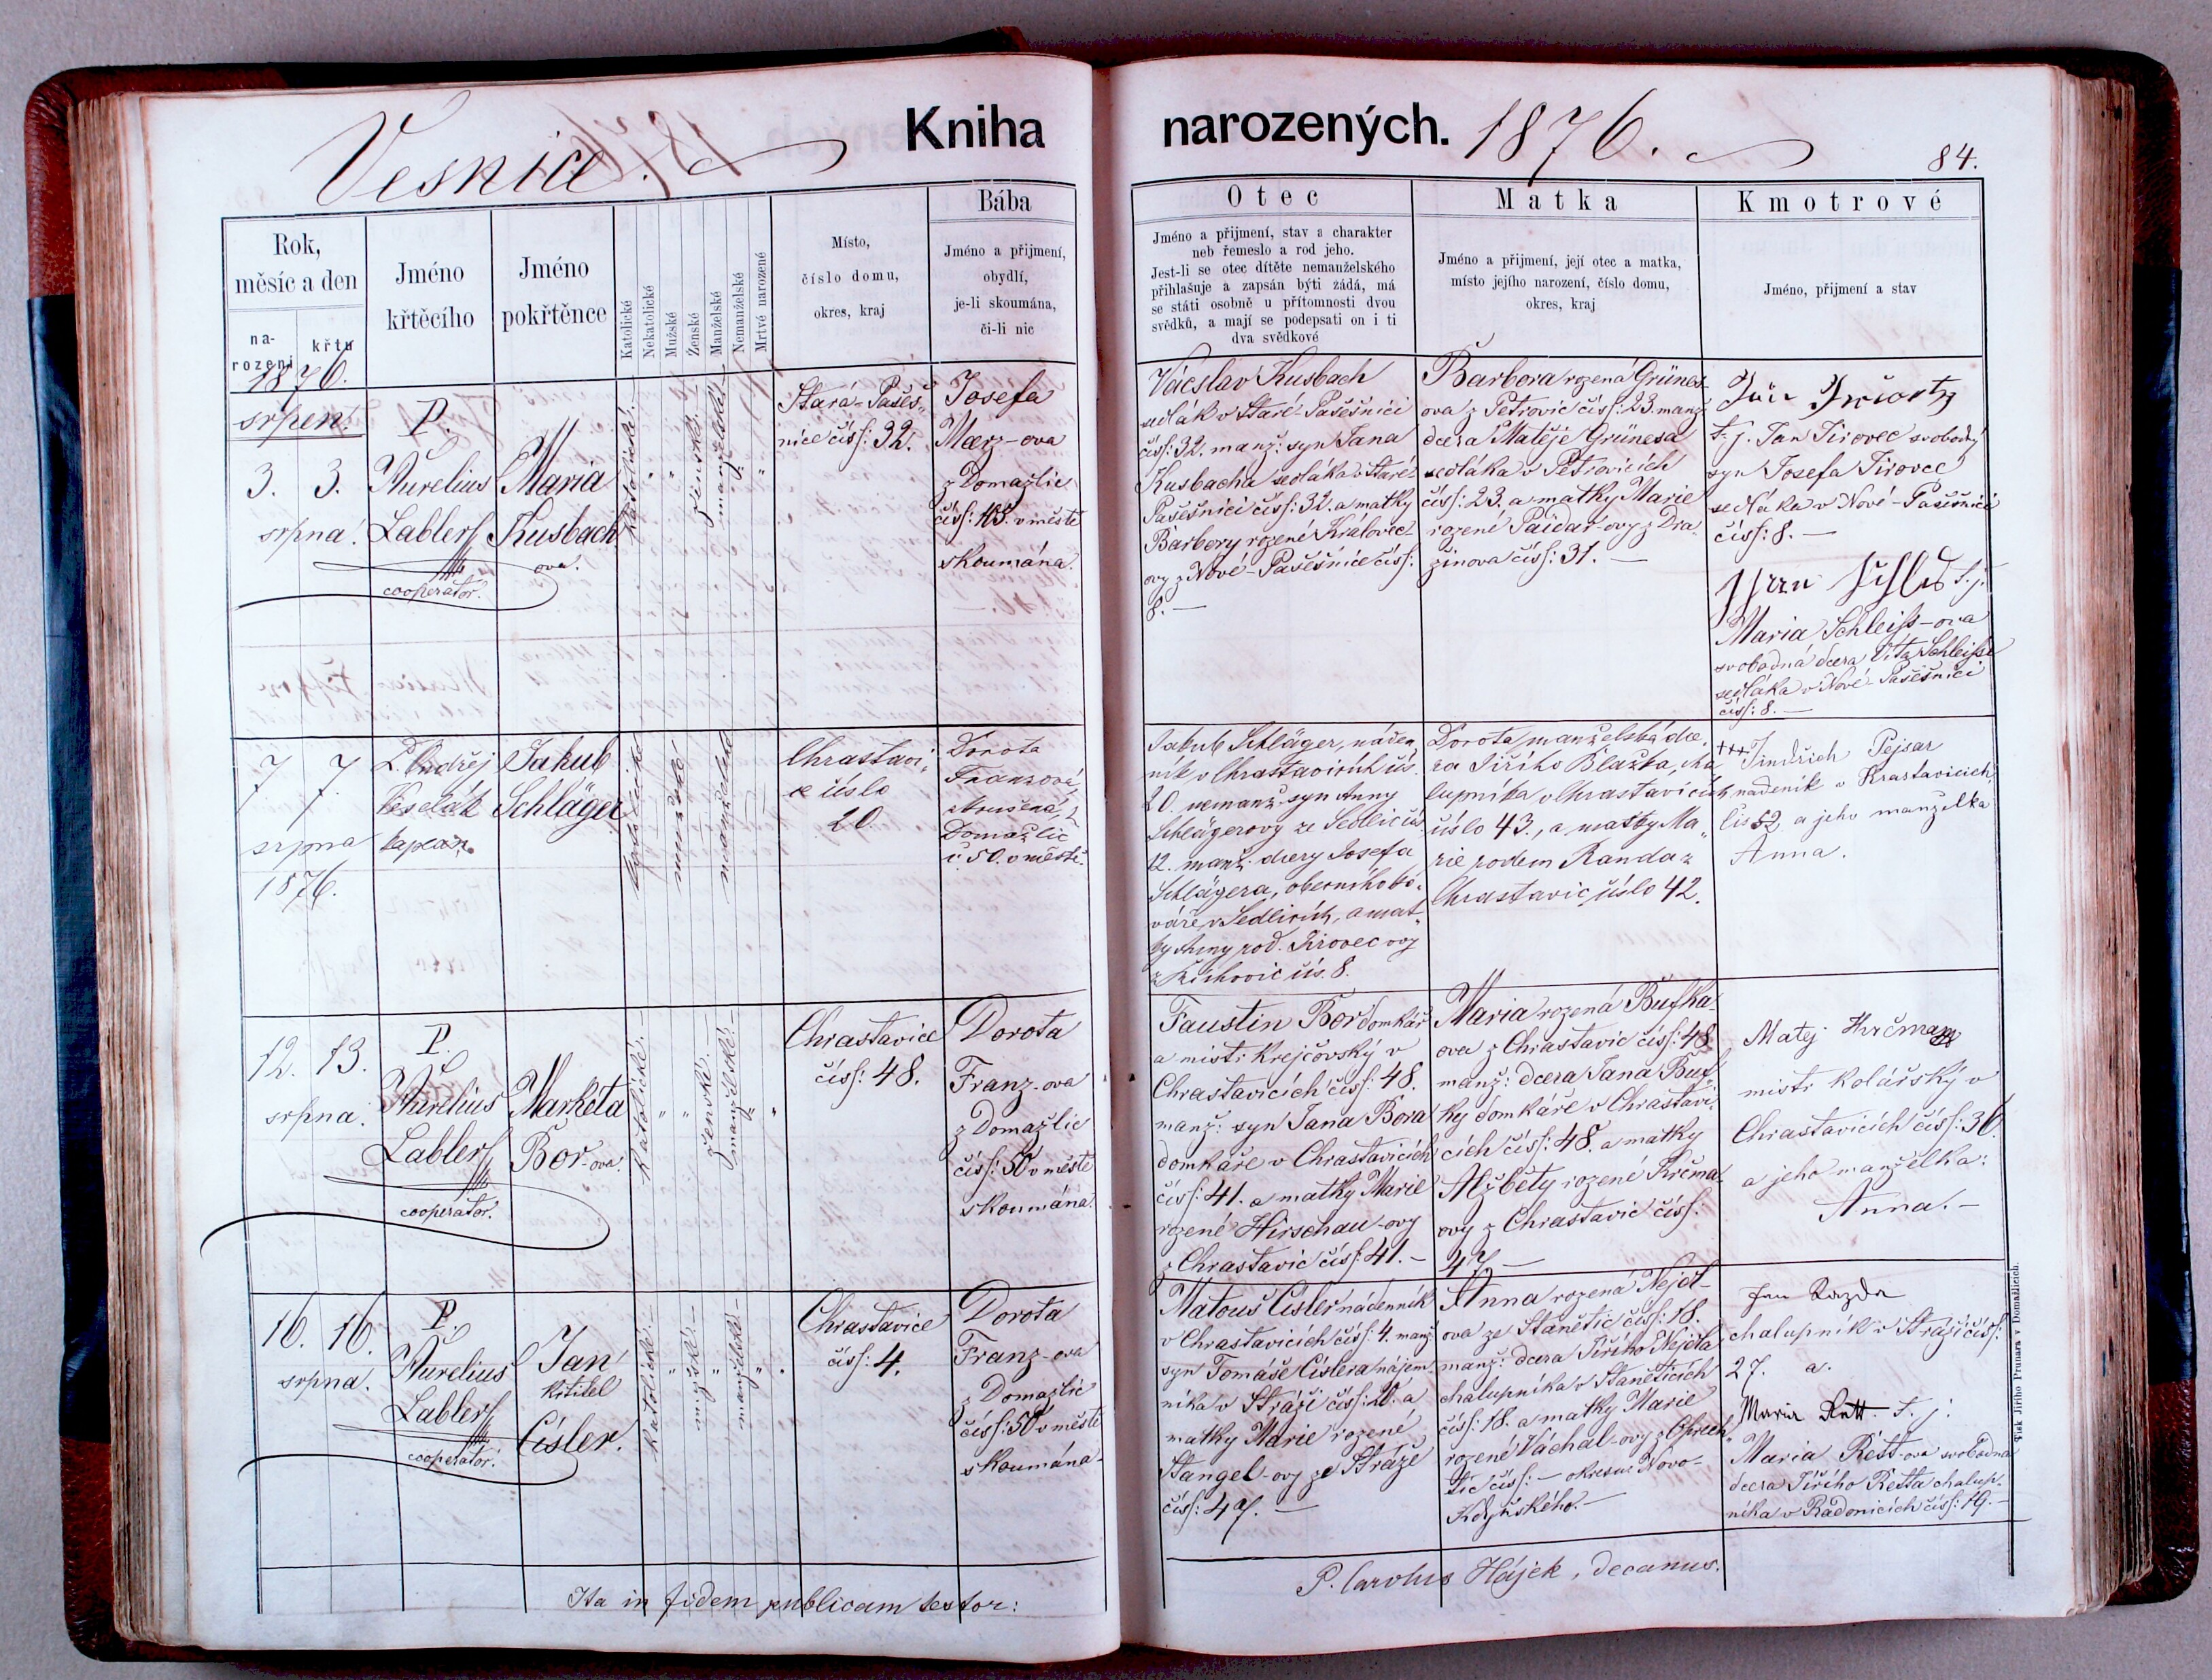 Vesnice.
Kniha
narozených.
1876.
84.
Rok,
měsíc a den
na-
rození
křtu
Jméno
křtěcího
Jméno
pokřtěnce
Katolické
Nekatolické
Mužské
Ženské
Manželské
Nemanželské
Mrtvě narozené
Místo,
číslo domu,
okres, kraj
Bába
Jméno a přijmení,
obydlí,
je-li skoumána,
či-li nic
Otec
Jméno a přijmení, stav a charakter
neb řemeslo a rod jeho.
Jest-li se otec dítěte nemanželského
přihlašuje a zapsán býti žádá, má
se státi osobně u přítomnosti dvou
svědků, a mají se podepsati on i ti
dva svědkové
Matka
Jméno a přijmení, její otec a matka,
místo jejího narození, číslo domu,
okres, kraj
Kmotrové
Jméno, přijmení a stav
1876.
srpen.
3. 3.
srpna.
P.
Aurelius
Labler
cooperator.
Maria
Kusbach
ova.
katolické.
ženské.
manželské.
Stará-Pašeš-
nice čísl: 32.
Josefa
Maerz-ova
z Domažlic
čísl: 113. v městě
skoumána.
Vácslav Kusbach
sedlák v Staré-Pašešnici
čísl: 32. manž: syn Jana
Kusbacha sedláka v Staré-
Pašešnici čísl: 32. a matky
Barbory rozené Královec-
ovy z Nové-Pašešnice čísl:
8. —
Barbora rozená Grünes-
ova z Petrovic čísl: 23. manž:
dcera Matěje Grünesa
sedláka v Petrovicích
čísl: 23. a matky Marie
rozené Paidar-ovy z Dra-
žinova čísl: 31. —
t. j. Jan Jirovec svobodný
syn Josefa Jirovce
sedláka v Nové-Pašešnici
čísl: 8. —
t. j.
Maria Schleiss-ova
svobodná dcera Víta Schleisse
sedláka v Nové-Pašešnici
čísl: 8. —
7 7.
srpna
1876.
P. Ondřej
Veselák
kaplan.
Jakub
Schläger
katolické
mužské
manželské
Chrastavi-
ce číslo
20.
Dorota
Franzová,
zkušená, z
Domažlic
č. 50. v městě.
Jakub Schläger, náden-
ník v Chrastavicích čís.
20. nemanž. syn Anny
Schlägerovy ze Sedlic čís.
12. manž. dcery Josefa
Schlägera, obecního ko-
váře v Sedlicích, a mat-
ky Anny rod. Jirovec ovy
čís. 8.
Dorota, manželská dce-
ra Jiřího Blažka, cha-
lupníka v Chrastavicích
číslo 43., a matky Ma-
rie rodem Randa z
Chrastavic číslo 42.
+++ Jindřich Pejsar
nadeník v Krastavicích
čis 52 a jeho manželka
Anna.
12. 13.
srpna.
P.
Aurelius
Labler
cooperator.
Markéta
Bor-ova.
katolické.
ženské.
manželské.
Chrastavice
čísl: 48.
Dorota
Franz-ova
z Domažlic
čísl: 50 v městě
skoumána.
Faustin Bor domkář
a mistr krejčovský v
Chrastavicích čísl: 48.
manž: syn Jana Bora
domkáře v Chrastavicích
čísl: 41. a matky Marie
rozené Hirschau-ovy
z Chrastavic čísl: 41. —
Maria rozená Bufka-
ova z Chrastavic čísl: 48
manž: dcera Jana Buf-
ky domkáře v Chrastavi-
cích čísl: 48. a matky
Alžběty rozené Krčma-
ovy z Chrastavic čísl:
47. —
Matej
mistr kolářský v
Chrastavicích čísl: 36.
a jeho manželka:
Anna. —
16. 16.
srpna.
P.
Aurelius
Labler
cooperator.
Jan
křtitel
Císler.
katolické.
mužské.
manželské.
Chrastavice
čísl: 4.
Dorota
Franz-ova
z Domažlic
čísl: 50 v městě
skoumána.
Matouš Císler nádenník
v Chrastavicích čísl: 4. manž:
syn Tomáše Císlera nájem-
níka v Stráži čísl: 20. a
matky Marie rozené
Stangel-ovy ze Stráže
čísl: 47. —
Anna rozená Nejdl-
ova ze Stanětic čísl: 18.
manž: dcera Jiřího Nejdla
chalupníka v Staněticích
čísl: 18. a matky Marie
rozené Váchal-ovy z Oprech-
tic čísl: — okresu Novo-
Kdyňského. —
Jan Razda
chalupník v Stráži čísl:
27. a.
Maria Rett t. j.
Maria Rett-ova svobodna
dcera Jiřího Retta chalup-
níka v Radonicích čísl: 19. —
Ita in fidem publicam testor:
P. Carolus Hájek, decanus.
Tisk Jiřího Prunara v Domažlicích.